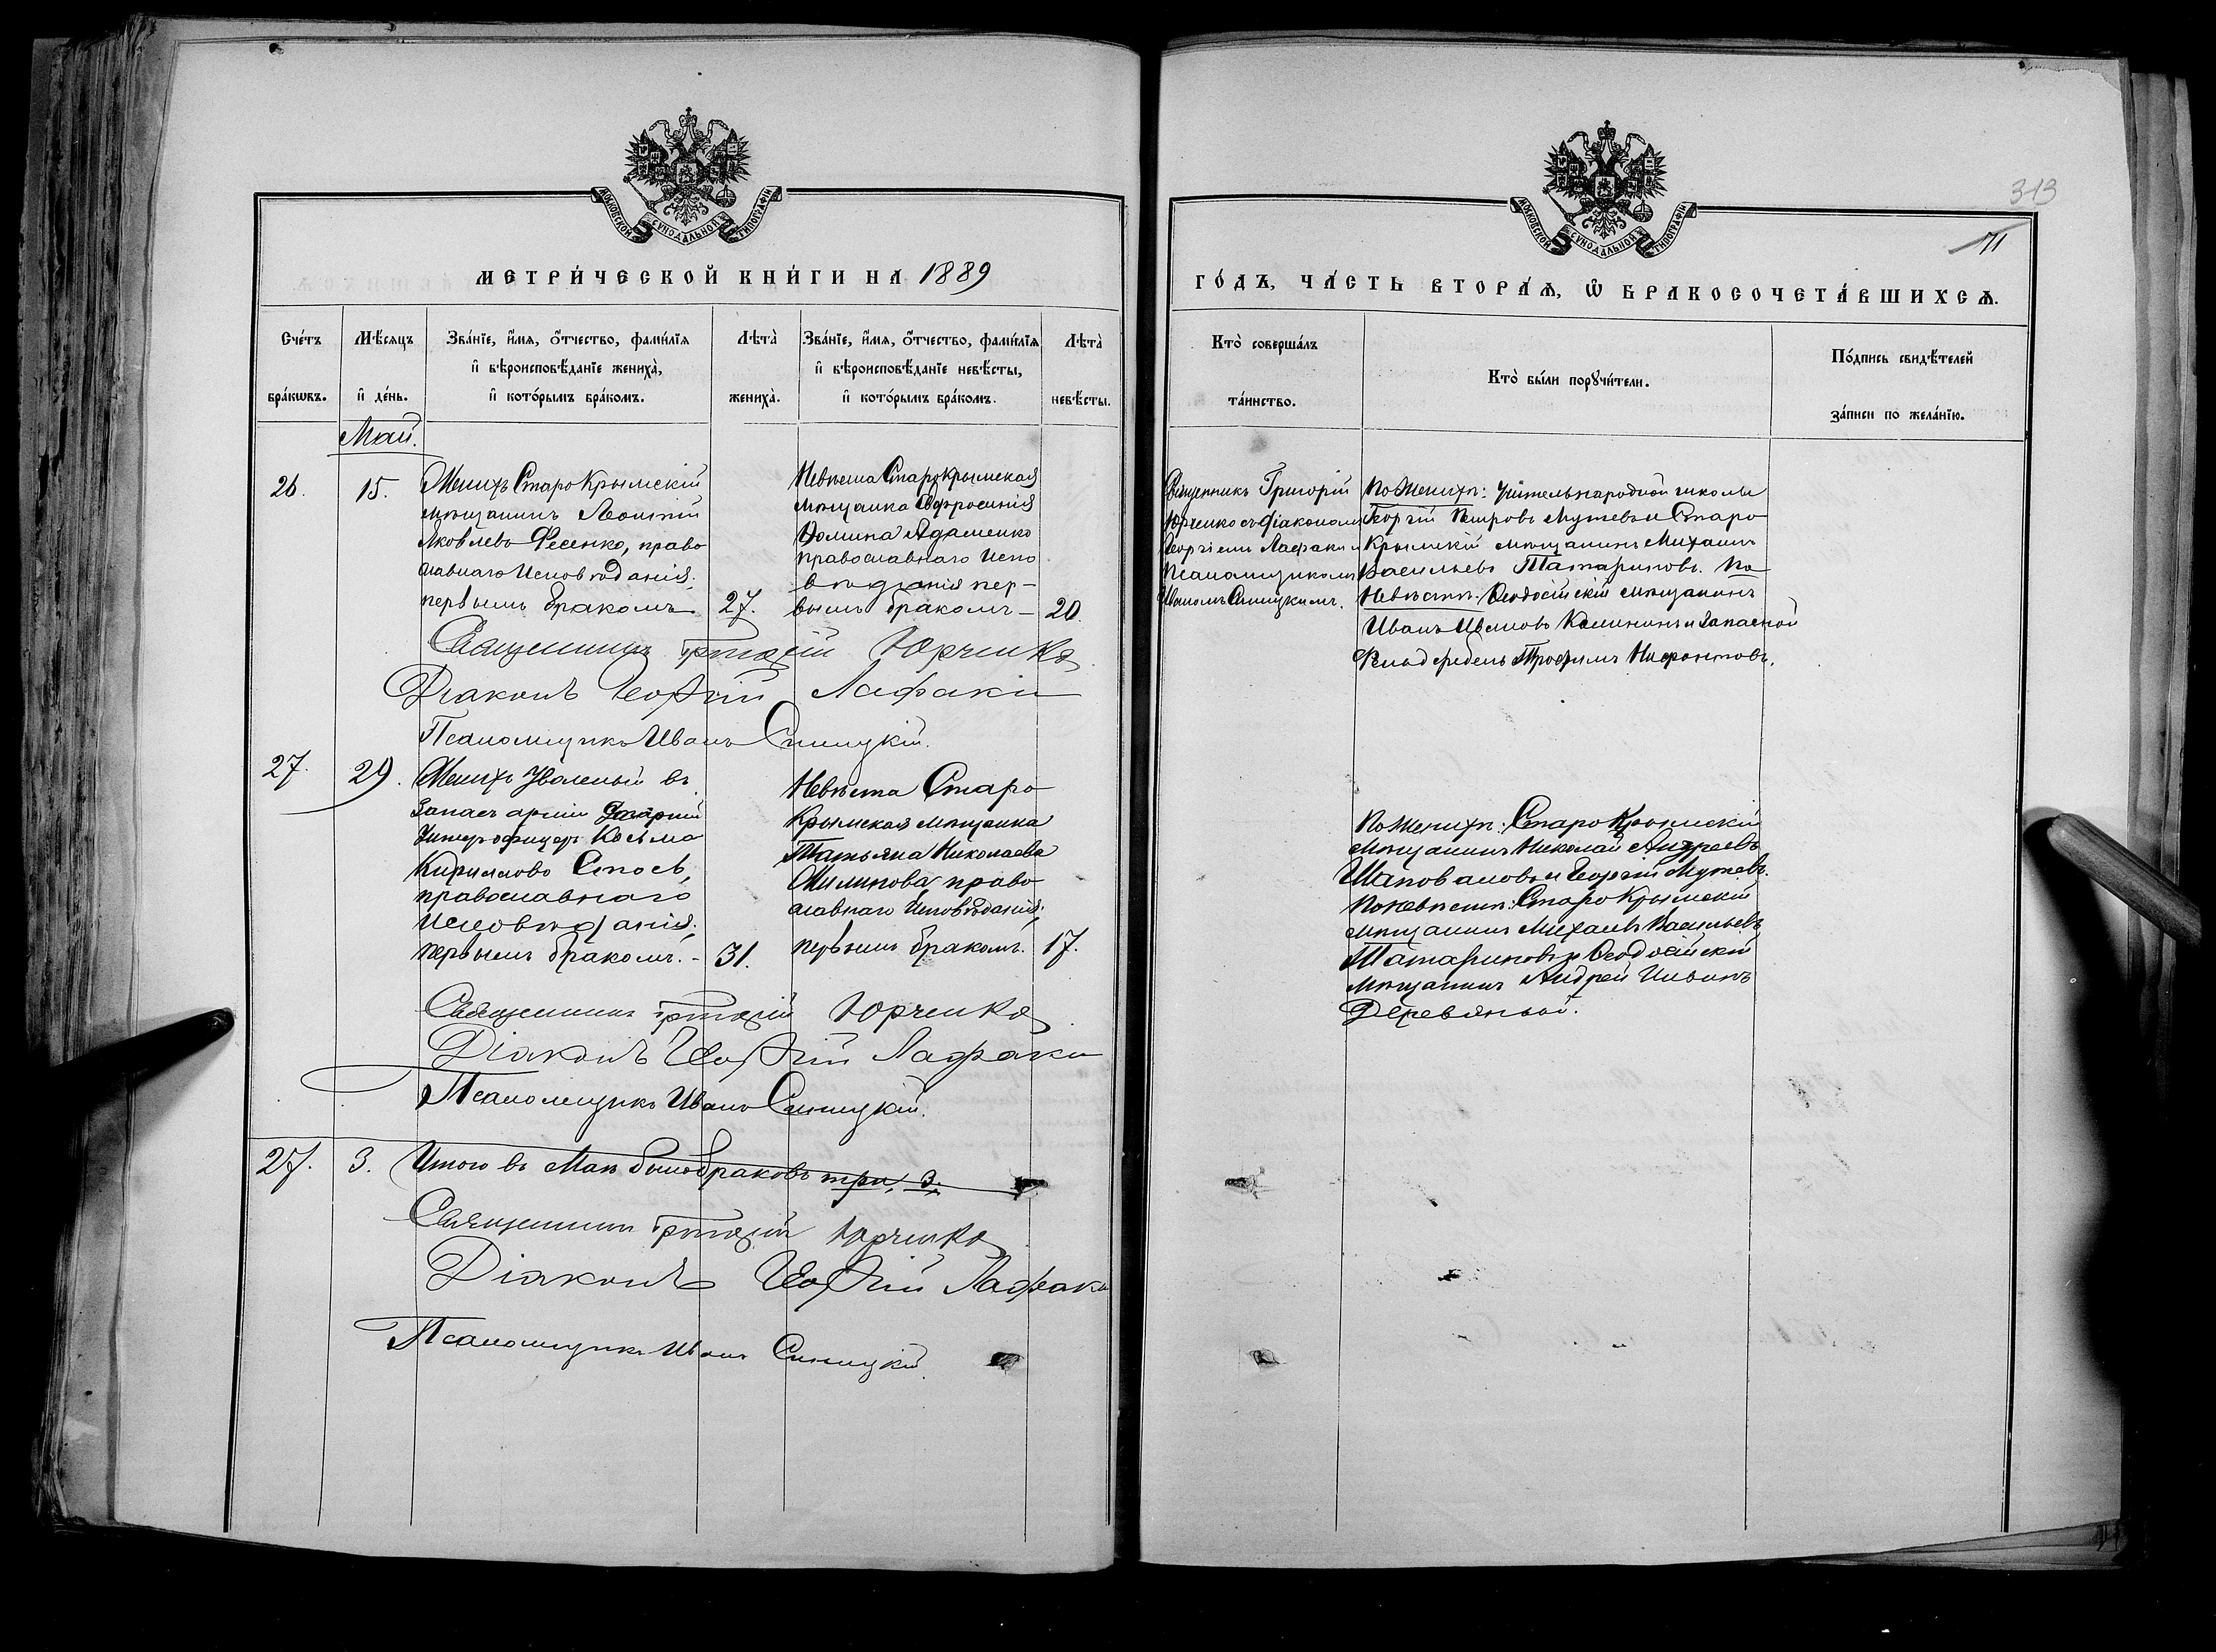 МОСКОВСКОЙ СУНОДАЛЬНОЙ ТИПОГРАФІИ
МЕТРИ́ЧЕСКОЙ КНИ́ГИ НА 1889
Сче́тъ бра́кѡвъ.
Мѣ́сяцъ и҆ де́нь.
Зва́нїе, и҆́мѧ, ѻ҆́тчество, фами́лїѧ
и҆ вѣроисповѣ́данїе жениха̀,
и҆ кото́рымъ бра́комъ.
Лѣта̀ жениха̀.
Зва́нїе, и҆́мѧ, ѻ҆́тчество, фами́лїѧ
и҆ вѣроисповѣ́данїе невѣ́сты,
и҆ кото́рымъ бра́комъ.
Лѣта̀ невѣ́сты.
Май.
26.
15.
Женихъ Старокрымскій
мѣщанинъ Леонтій
Яковлевъ Фесенко, право
славнаго Исповѣданія,
первымъ бракомъ.
27.
Невѣста Старокрымская
мѣщанка Евфросинія
Фомина Адаменко
православнаго Испо
вѣданія пер-
вымъ бракомъ –
20.
Священникъ Григорій Юрченко
Діаконъ Георгій Лафаки
Псаломщикъ Иванъ Синицкій.
27.
29.
Женихъ Уволеный въ
Запасъ арміи Старшій
Унтеръ офицеръ Косьма
Кирилловъ Стось,
православнаго
исповѣданія,
первымъ бракомъ. –
31.
Невѣста Старо
Крымская мѣщанка
Татьяна Николаева
православнаго Исповѣданія;
первымъ бракомъ.
17.
Священникъ Григорій Юрченко
Діаконъ Георгій Лафаки
Псаломщикъ Иванъ Синицкій.
27.
3.
Итого въ Маѣ было браковъ три, 3.
Священникъ Григорій Юрченко
Діаконъ Георгій Лафаки
Псаломщикъ Иванъ Синицкій.
313
71
МОСКОВСКОЙ СУНОДАЛЬНОЙ ТИПОГРАФІИ
ГО́ДЪ, ЧА́СТЬ ВТОРА́Ѧ, Ѡ҆ БРАКОСОЧЕТА́ВШИХСѦ.
Кто̀ соверша́лъ та́инство.
Кто̀ бы́ли порꙋчи́тели.
По́дпись свидѣ́телей
за́писи по жела́нїю.
Священникъ Григорій
Юрченко съ діакономъ
Георгіемъ Лафаки и
Псаломщикомъ
Иваномъ Синицкимъ.
По Женихѣ: Учитель народной школы
Георгій Петровъ Мутевъ и Старо
Крымскій мѣщанинъ Михаилъ
Васильевъ Татариновъ. По
Невѣстѣ: Ѳеодосійскій мѣщанинъ
Иванъ Ивановъ Калининъ и Запасной
Фельдфебель Трофимъ Нифонтовъ.
По Женихѣ: Старо Крымскій
мѣщанинъ Николай Андреевъ
Шаповаловъ и Георгій Мутевъ.
По невѣстѣ: Старо Крымскій
мѣщанинъ Михаилъ Васильевъ
Татариновъ и Ѳеодосійскій
мѣщанинъ Андрей
Деревяной.